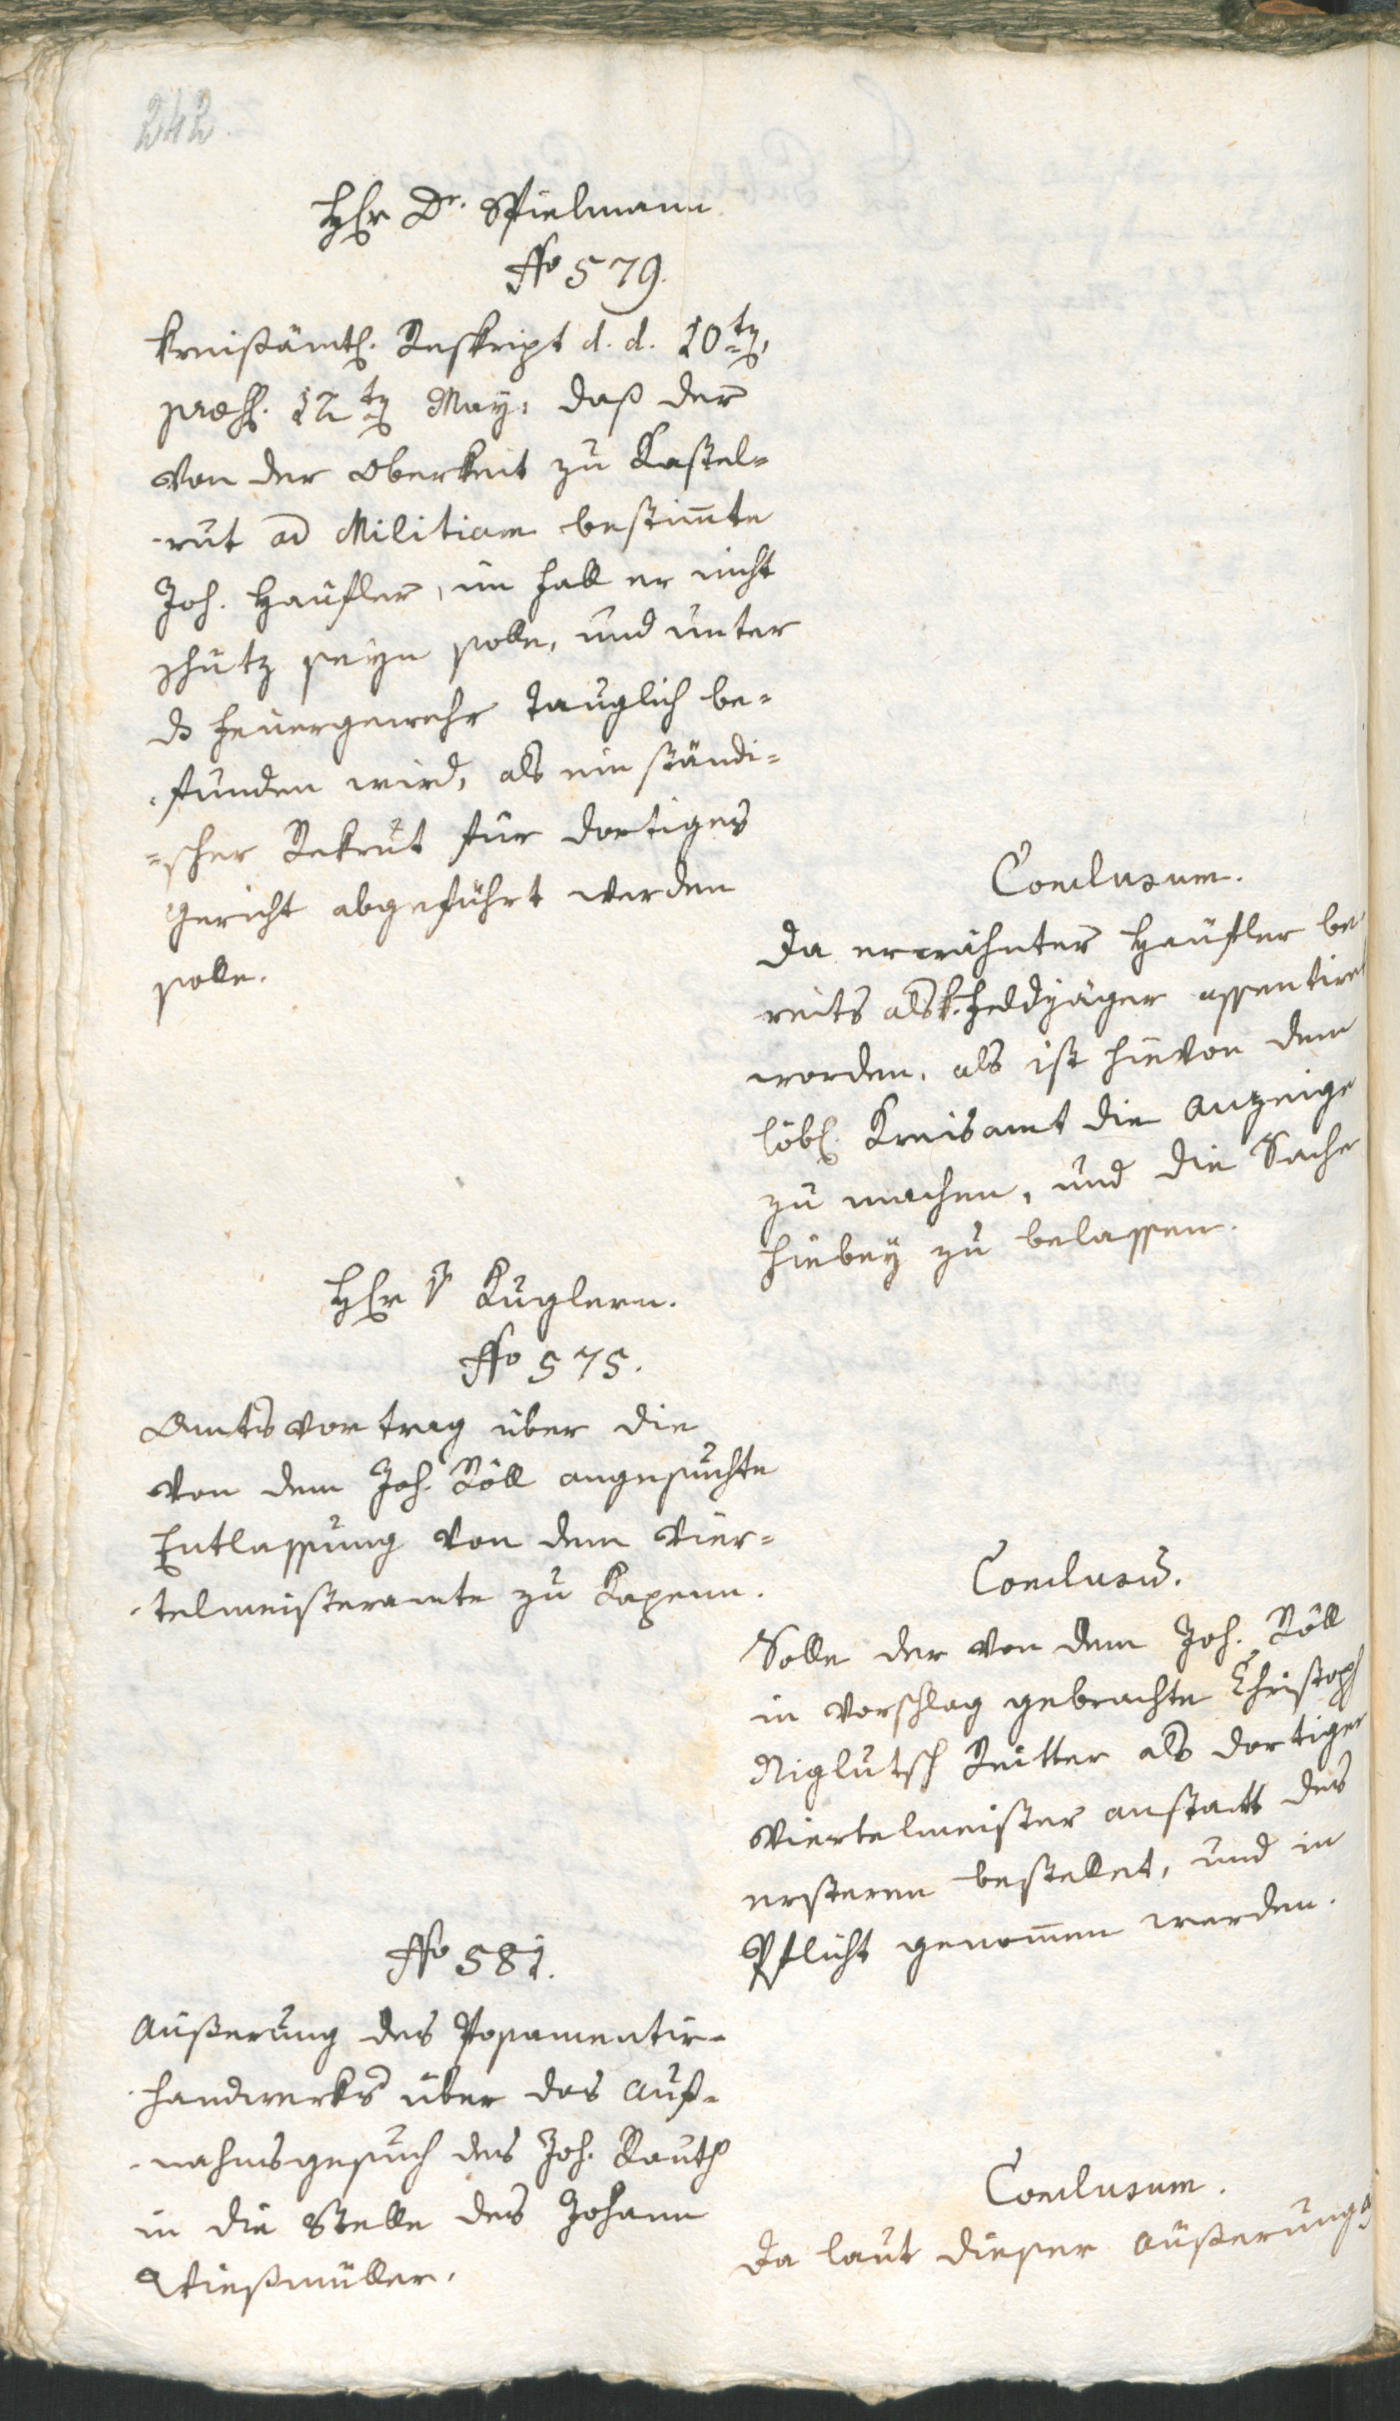 242.
HEr Dr. Spielmann
No 579.
Kreißämtl. Reskript d. d. 10tn,
præs. 12tn May: daß der
von der Oberkeit zu Kastel-
-rut ad Militiam bestimmte
Joh. Haüsler, im fall er nicht
schütz seyn solle, und unter
ds feuergewehr tauglich be-
-funden wird, als ein ständi-
-scher Rekrut für dortiges
Gericht abgeführt werden
solle.
Conclusum.
Da erwähnter Haüsler be
reits als k. Feldjäger assentiret
worden, als ist hievon dem
löbl. Kreisamt die Anzeige
zu machen, und die Sache
hiebey zu belassen.
HEr v Kuglern.
No 575.
Amtsvortrag über die
von dem Joh. Röll angesuchte
Entlassung von dem Vier-
-telmeisteramte zu Kapenn.
Conclusum.
Solle der von dem Joh. Röll
in Vorschlag gebrachte Christoph
Niglutsch Reitter als dortiger
Viertelmeister anstatt des
ersteren bestellet, und in
Pflicht genommen werden.
No 581.
Aüßerung des Posamentir-
-handwerks über das Auf-
-nahmsgesuch des Joh. Rauth
in die Stelle des Johann
Wießmüller.
Conclusum.
Da laut dieser Aüßerung